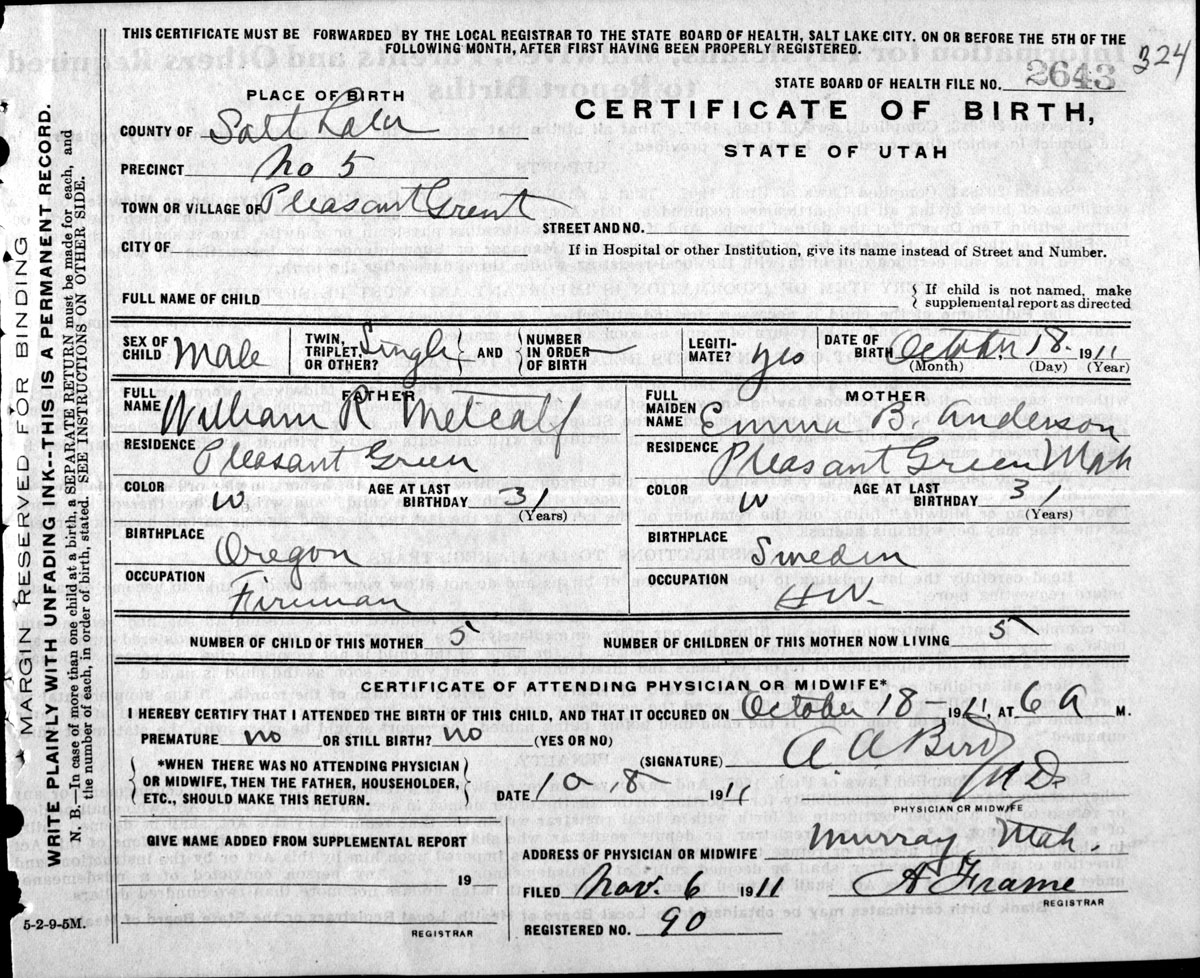 THIS CERTIFICATE MUST BE FORWARDED BY THE LOCAL REGISTRAR TO THE STATE BOARD OF HEALTH, SALT LAKE CITY. ON OR BEFORE THE 5TH OF THE
FOLLOWING MONTH, AFTER FIRST HAVING BEEN PROPERLY REGISTERED.
324
STATE BOARD OF HEALTH FILE NO. 2643
PLACE OF BIRTH
CERTIFICATE OF BIRTH,
STATE OF UTAH
COUNTY OF Salt Lake
PRECINCT No 5
TOWN OR VILLAGE OF Pleasant
STREET AND NO.
CITY OF
If in Hospital or other Institution, give its name instead of Street and Number.
FULL NAME OF CHILD
{ If child is not named, make
supplemental report as directed
SEX OF CHILD Male
TWIN, TRIPLET, OR OTHER? Single AND NUMBER IN ORDER OF BIRTH
LEGITI- MATE? yes
DATE OF BIRTH October 18. 1911
(Month) (Day) (Year)
FATHER
FULL NAME William R Metcalf
RESIDENCE Pleasant Green
COLOR W. AGE AT LAST BIRTHDAY 31
(Years)
BIRTHPLACE Oregon
OCCUPATION Fireman
MOTHER
FULL MAIDEN NAME Emma B. Anderson
RESIDENCE Pleasant Green Utah
COLOR W AGE AT LAST BIRTHDAY 31
(Years)
BIRTHPLACE Sweden
OCCUPATION H W.
NUMBER OF CHILD OF THIS MOTHER 5
NUMBER OF CHILDREN OF THIS MOTHER NOW LIVING 5
CERTIFICATE OF ATTENDING PHYSICIAN OR MIDWIFE*
I HEREBY CERTIFY THAT I ATTENDED THE BIRTH OF THIS CHILD, AND THAT IT OCCURED ON October 18 - 1911 AT 6 A M.
PREMATURE no OR STILL BIRTH? no (YES OR NO)
(SIGNATURE) A. A Bird
M.D.
PHYSICIAN OR MIDWIFE
{ *WHEN THERE WAS NO ATTENDING PHYSICIAN
OR MIDWIFE, THEN THE FATHER, HOUSEHOLDER,
ETC., SHOULD MAKE THIS RETURN. }
DATE 10 - 1911
GIVE NAME ADDED FROM SUPPLEMENTAL REPORT
19
REGISTRAR
ADDRESS OF PHYSICIAN OR MIDWIFE Murray Utah.
FILED Nov. 6 1911
A Frame
REGISTRAR
REGISTERED NO. 90
5-2-9-5M.
MARGIN RESERVED FOR BINDING
WRITE PLAINLY WITH UNFADING INK--THIS IS A PERMANENT RECORD.
N. B.—In case of more than one child at a birth, a SEPARATE RETURN must be made for each, and
the number of each, in order of birth, stated. SEE INSTRUCTIONS ON OTHER SIDE.